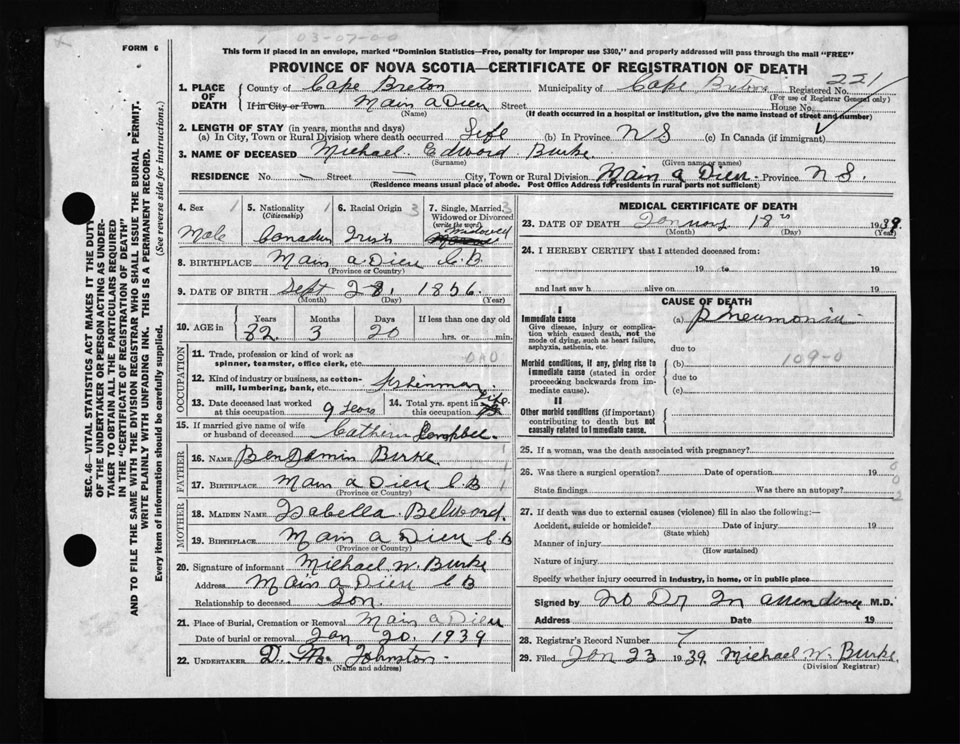 1 03-07-00
FORM 6
This form if placed in an envelope, marked "Dominion Statistics—Free, penalty for improper use $300," and properly addressed will pass through the mail "FREE"
PROVINCE OF NOVA SCOTIA—CERTIFICATE OF REGISTRATION OF DEATH
SEC. 46—VITAL STATISTICS ACT MAKES IT THE DUTY
OF THE UNDERTAKER OR PERSON ACTING AS UNDER-
TAKER TO OBTAIN ALL THE PARTICULARS REQUIRED
IN THE "CERTIFICATE OF REGISTRATION OF DEATH"
AND TO FILE THE SAME WITH THE DIVISION REGISTRAR WHO SHALL ISSUE THE BURIAL PERMIT.
WRITE PLAINLY WITH UNFADING INK. THIS IS A PERMANENT RECORD.
Every item of information should be carefully supplied. (See reverse side for instructions.)
1. PLACE OF DEATH County of Cape Breton Municipality of Cape Breton Registered No. 221
(For use of Registrar General only)
If in City or Town Main a Dieu Street House No.
(Name) (If death occurred in a hospital or institution, give the name instead of street and number)
2. LENGTH OF STAY (in years, months and days)
(a) In City, Town or Rural Division where death occurred Life (b) In Province N S (c) In Canada (if immigrant)
3. NAME OF DECEASED Michael Edword Burke
(Surname) (Given name or names)
RESIDENCE No. — Street — City, Town or Rural Division Main a Dieu Province N S.
(Residence means usual place of abode. Post Office Address for residents in rural parts not sufficient)
4. Sex 1 5. Nationality 1 6. Racial Origin 3 7. Single, Married, 3
(Citizenship) Widowed or Divorced
(write the word)
Male Canadian Irish Widowed
8. BIRTHPLACE Main a Dieu C.B
(Province or Country)
9. DATE OF BIRTH Sept 28, 1856
(Month) (Day) (Year)
10. AGE in Years Months Days If less than one day old
82 3 20 hrs. or min.
OCCUPATION
11. Trade, profession or kind of work as
spinner, teamster, office clerk, etc. 0 0 0
12. Kind of industry or business, as cotton-
mill, lumbering, bank, etc. Fisherman
13. Date deceased last worked
at this occupation 9 Years
14. Total yrs. spent in
this occupation Life
15. If married give name of wife
or husband of deceased Cathern Campbel
FATHER
16. Name Benjamin Burke 1
17. Birthplace Main a Dieu C.B 1
(Province or Country)
MOTHER
18. Maiden Name Isabella Belword
19. Birthplace Main a Dieu C B
(Province or Country)
20. Signature of informant Michael W. Burke
Address Main a Dieu C B
Relationship to deceased Son
21. Place of Burial, Cremation or Removal Main a Dieu
Date of burial or removal Jan 20, 1939
22. UNDERTAKER D. M. Johnston
(Name and address)
MEDICAL CERTIFICATE OF DEATH
23. DATE OF DEATH January 18 1939
(Month) (Day) (Year)
24. I HEREBY CERTIFY that I attended deceased from:
19 to 19
and last saw h alive on 19
CAUSE OF DEATH
I
Immediate cause (a) Pneumonia
Give disease, injury or complica-
tion which caused death, not the
mode of dying, such as heart failure,
asphyxia, asthenia, etc. due to
Morbid conditions, if any, giving rise to (b) 109-0
immediate cause (stated in order due to
proceeding backwards from im-
mediate cause). (c)
II
Other morbid conditions (if important)
contributing to death but not
causally related to immediate cause.
25. If a woman, was the death associated with pregnancy? 0
26. Was there a surgical operation? Date of operation 19 0
State findings Was there an autopsy? 2
27. If death was due to external causes (violence) fill in also the following:—
Accident, suicide or homicide? Date of injury 19
(State which)
Manner of injury
(How sustained)
Nature of injury
Specify whether injury occurred in industry, in home, or in public place
Signed by No Dr In attendance M.D.
Address Date 19
28. Registrar's Record Number 7
29. Filed Jan 23 1939 Michael W. Burke
(Division Registrar)